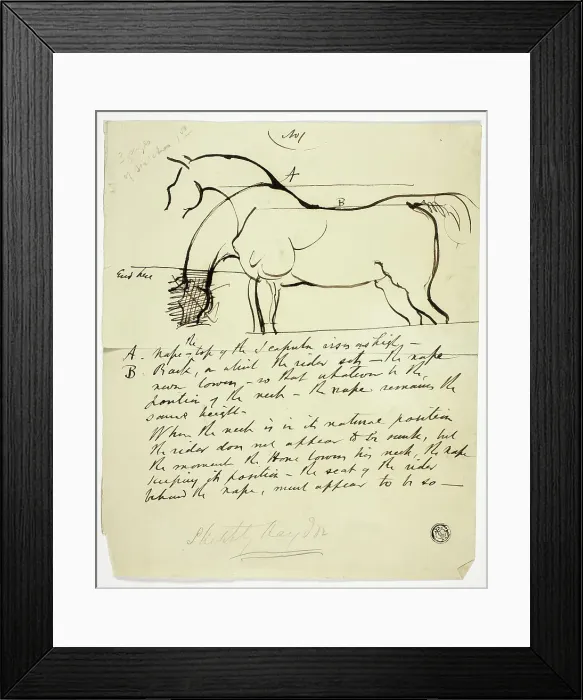 No 1
A
B
End here
A. the nape = top of the Scapula rises as high —
B. Back, on which the rider sits — the nape
never lowers — so that whatever be the
position of the neck — the nape remains the
same height —
When the neck is in its natural position
the rider does not appear to be sunk, but
the moment the Horse lowers his neck, the nape
keeping its position — the seat of the rider
behind the nape, must appear to be so —
Sketch Haydon